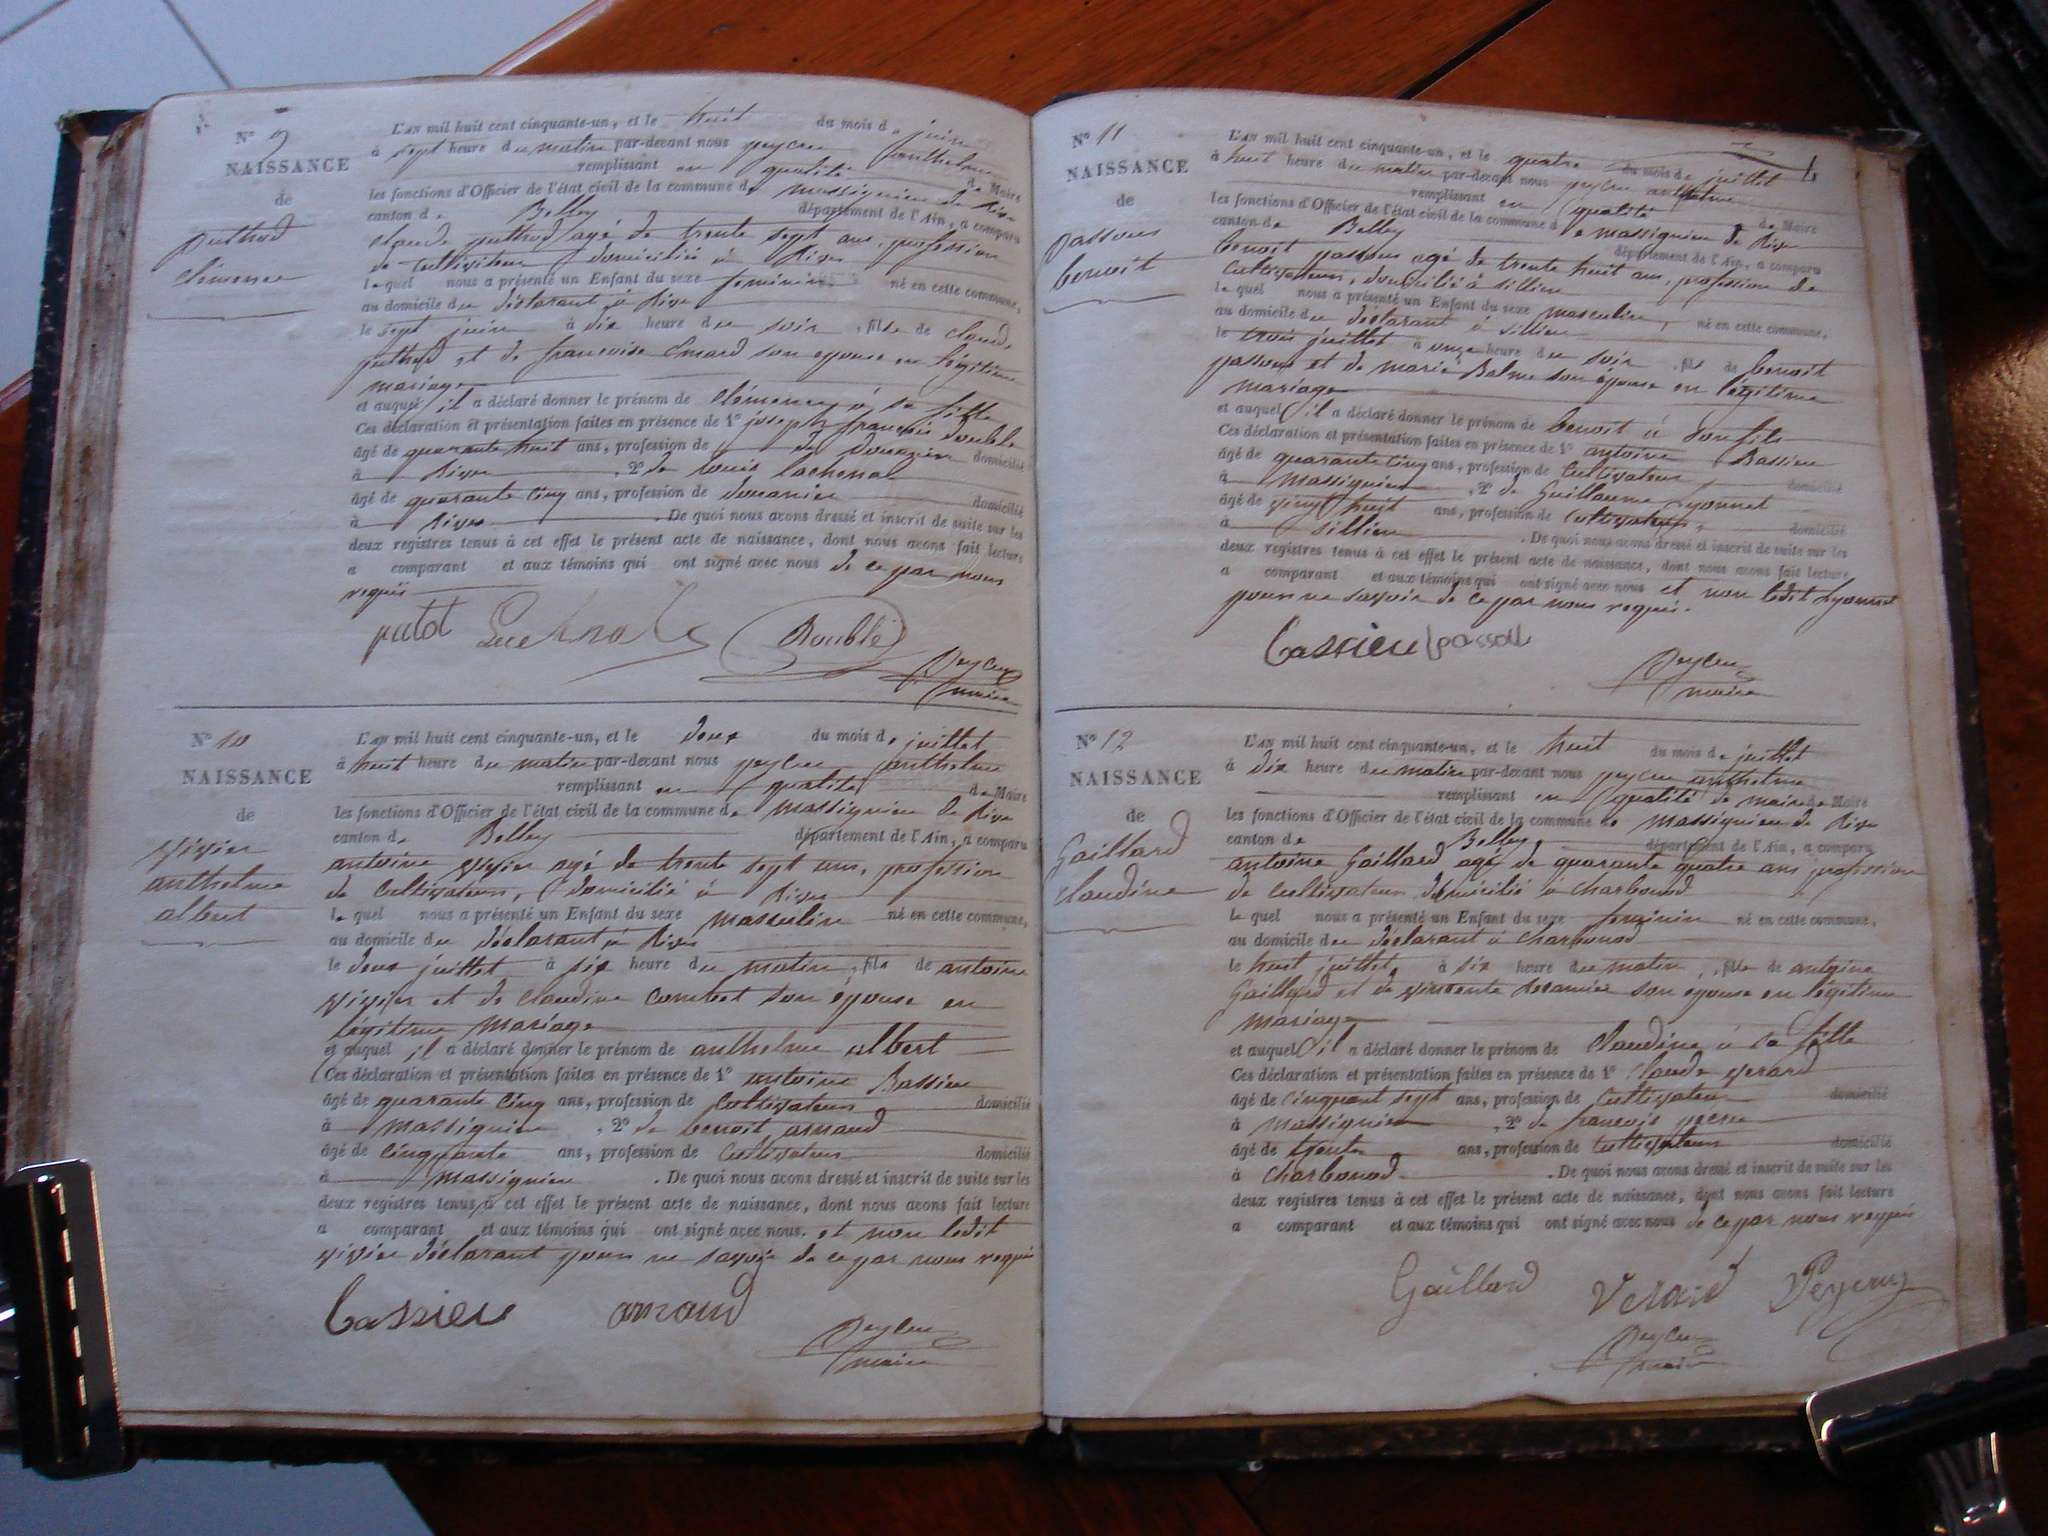 N° 9
NAISSANCE
de
puthod
clémence
L'AN mil huit cent cinquante-un, et le huit du mois de juin
à sept heure du matin par-devant nous peycru anthelme
remplissant en qualité de Maire
les fonctions d'Officier de l'état civil de la commune de massignieu de Rive
canton de Belley département de l'Ain, a comparu
claude puthod agé de trente sept ans, profession
de cultivateur domicilié à Rives
lequel nous a présenté un Enfant du sexe feminin né en cette commune,
au domicile du déclarant à Rive
le sept juin à dix heure du soir, fille de claude
puthod et de françoise son epouse en légitime
mariage
et auquel il a déclaré donner le prénom de clémence à sa fille
Ces déclaration et présentation faites en présence de 1° joseph françois double
âgé de quarante huit ans, profession de douanier domicilié
à Rives, 2° de louis lachenal
âgé de quarante cinq ans, profession de douanier domicilié
à Rives. De quoi nous avons dressé et inscrit de suite sur les
deux registres tenus à cet effet le présent acte de naissance, dont nous avons fait lecture
a comparant et aux témoins qui ont signé avec nous de ce par nous
requis
putot Lachenal Doublé
peycru
maire
N° 10
NAISSANCE
de
vivier
anthelme
albert
L'AN mil huit cent cinquante-un, et le deux du mois de juillet
à huit heure du matin par-devant nous peycru anthelme
remplissant en qualité de Maire
les fonctions d'Officier de l'état civil de la commune de massignieu de Rive
canton de Belley département de l'Ain, a comparu
antoine vivier agé de trente sept ans, profession
de cultivateur, domicilié à Rives
lequel nous a présenté un Enfant du sexe masculin né en cette commune,
au domicile du déclarant à Rives
le deux juillet à six heure du matin, fils de antoine
vivier et de claudine combet son épouse en
légitime mariage
et auquel il a déclaré donner le prénom de anthelme albert
Ces déclaration et présentation faites en présence de 1° antoine Bassieu
âgé de quarante cinq ans, profession de cultivateur domicilié
à massignieu, 2° de benoit arnaud
âgé de cinquante ans, profession de cultivateur domicilié
à massignieu. De quoi nous avons dressé et inscrit de suite sur les
deux registres tenus à cet effet le présent acte de naissance, dont nous avons fait lecture
a comparant et aux témoins qui ont signé avec nous. et non ledit
vivier déclarant pour ne savoir de ce par nous requis
bassieu arnaud
peycru
maire
N° 11
NAISSANCE
de
passous
benoit
L'AN mil huit cent cinquante-un, et le quatre du mois de juillet
à huit heure du matin par-devant nous peycru anthelme
remplissant en qualité de Maire
les fonctions d'Officier de l'état civil de la commune de massignieu de Rive
canton de Belley département de l'Ain, a comparu
benoit passous agé de trente huit ans, profession de
cultivateur, domicilié à sillieu
lequel nous a présenté un Enfant du sexe masculin, né en cette commune,
au domicile du déclarant à sillieu
le trois juillet à onze heure du soir, fils de benoit
passous et de marie Balme son épouse en légitime
mariage
et auquel il a déclaré donner le prénom de benoit à son fils
Ces déclaration et présentation faites en présence de 1° antoine Bassieu
âgé de quarante cinq ans, profession de cultivateur domicilié
à massignieu, 2° de Guillaume Lyonnet
âgé de vingt huit ans, profession de cultivateur, domicilié
à sillieu. De quoi nous avons dressé et inscrit de suite sur les
deux registres tenus à cet effet le présent acte de naissance, dont nous avons fait lecture
a comparant et aux témoins qui ont signé avec nous et non ledit Lyonnet
pour ne savoir de ce par nous requis.
bassieu
peycru
maire
N° 12
NAISSANCE
de
Gaillard
claudine
L'AN mil huit cent cinquante-un, et le huit du mois de juillet
à dix heure du matin par-devant nous peycru anthelme
remplissant en qualité de maire de Maire
les fonctions d'Officier de l'état civil de la commune de massignieu de Rive
canton de Belley département de l'Ain, a comparu
antoine Gaillard agé de quarante quatre ans profession
de cultivateur domicilié à charbonod
lequel nous a présenté un Enfant du sexe feminin né en cette commune,
au domicile du déclarant à charbonod
le huit juillet à six heure du matin, fille de antoine
Gaillard et de son epouse en légitime
mariage
et auquel il a déclaré donner le prénom de claudine à sa fille
Ces déclaration et présentation faites en présence de 1° claude verard
âgé de cinquant sept ans, profession de cultivateur domicilié
à massignieu, 2° de françois
âgé de trente ans, profession de cultivateur domicilié
à charbonod. De quoi nous avons dressé et inscrit de suite sur les
deux registres tenus à cet effet le présent acte de naissance, dont nous avons fait lecture
a comparant et aux témoins qui ont signé avec nous de ce par nous requis
Gaillard Verard
peycru
maire